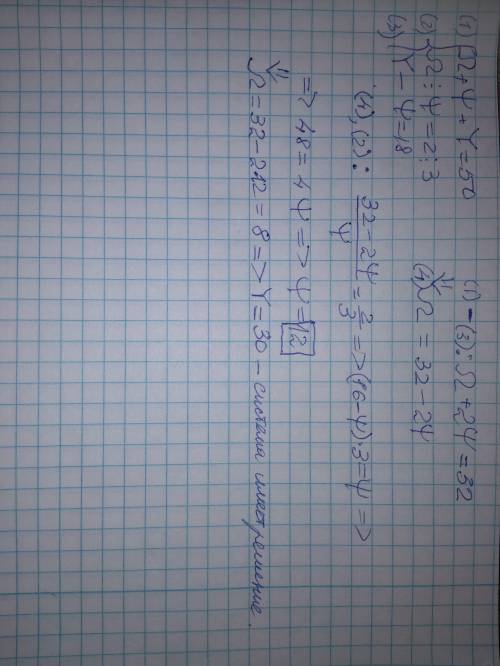 (1) { Ω + Ψ + Υ = 50
(2) { Ω : Ψ = 2 : 3
(3) { Υ − Ψ = 18
(1) − (3): Ω + 2Ψ = 32
⇓
(4) Ω = 32 − 2Ψ
(4), (2): (32 − 2Ψ)/Ψ = 2/3 => (16 − Ψ)·3 = Ψ =>
=> 48 = 4Ψ => Ψ = 12
⇓
Ω = 32 − 2·12 = 8 => Υ = 30 – система имеет решение.